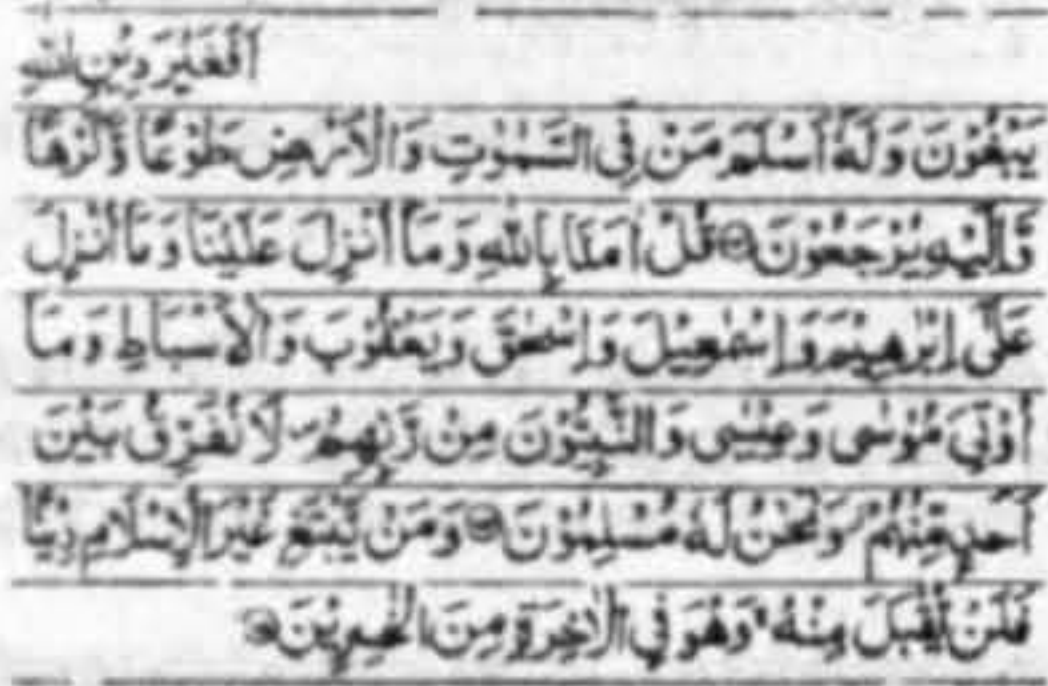 اَفَغَيْرَ دِيْنِ اللّٰهِ
يَبْغُوْنَ وَلَهٗٓ اَسْلَمَ مَنْ فِي السَّمٰوٰتِ وَالْاَرْضِ طَوْعًا وَّكَرْهًا
وَّاِلَيْهِ يُرْجَعُوْنَ ۝ قُلْ اٰمَنَّا بِاللّٰهِ وَمَآ اُنْزِلَ عَلَيْنَا وَمَآ اُنْزِلَ
عَلٰٓى اِبْرٰهِيْمَ وَاِسْمٰعِيْلَ وَاِسْحٰقَ وَيَعْقُوْبَ وَالْاَسْبَاطِ وَمَآ
اُوْتِيَ مُوْسٰى وَعِيْسٰى وَالنَّبِيُّوْنَ مِنْ رَّبِّهِمْ ۠ لَا نُفَرِّقُ بَيْنَ
اَحَدٍ مِّنْهُمْ ۡ وَنَحْنُ لَهٗ مُسْلِمُوْنَ ۝ وَمَنْ يَّبْتَغِ غَيْرَ الْاِسْلَامِ دِيْنًا
فَلَنْ يُّقْبَلَ مِنْهُ ۚ وَهُوَ فِي الْاٰخِرَةِ مِنَ الْخٰسِرِيْنَ ۝